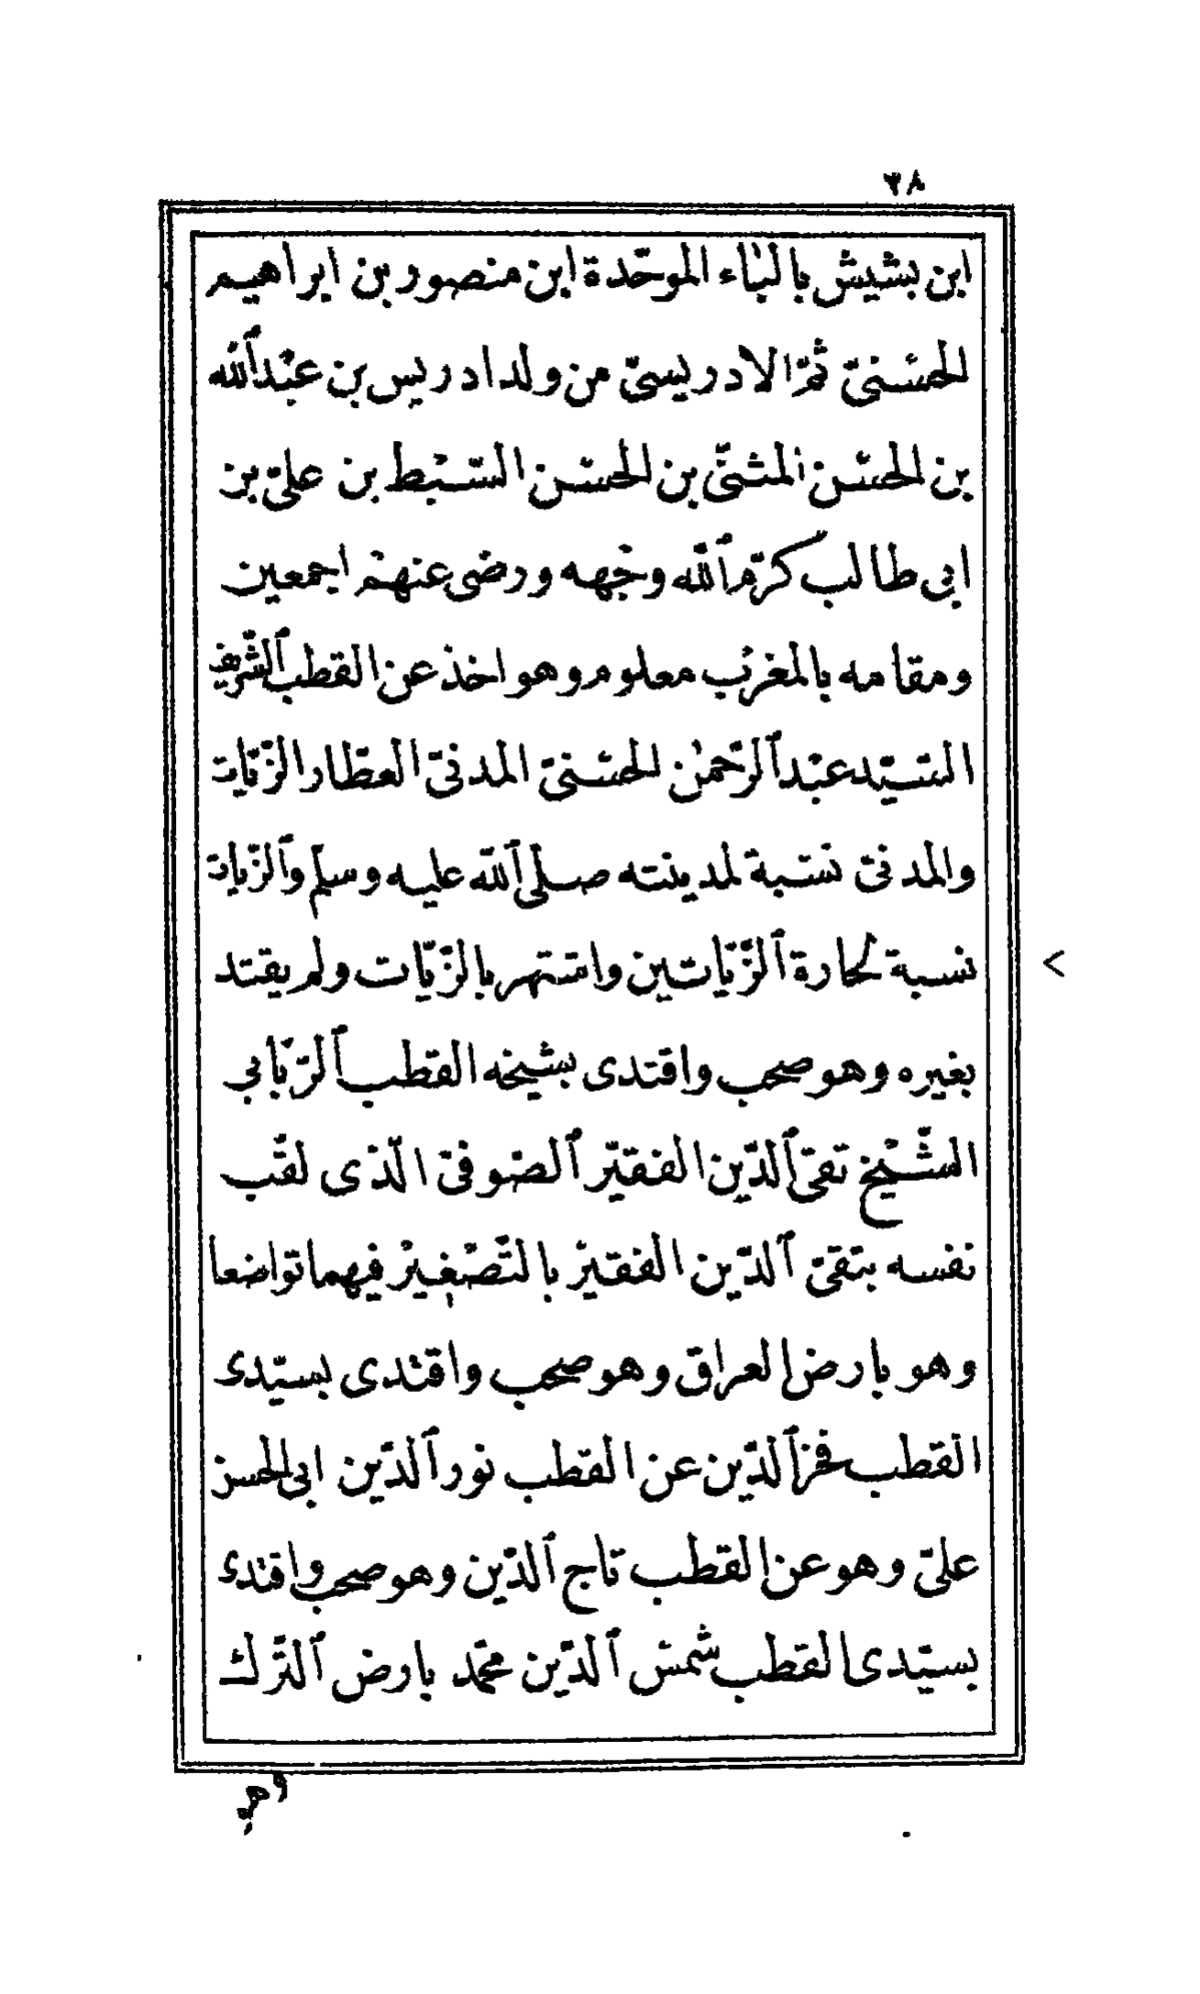 ٣٨
ابن بشيش بالباء الموحّدة ابن منصور بن ابراهيم
الحسنىّ ثمّ الادريسىّ من ولد ادريس بن عبد ٱلله
بن الحسن المثنّى بن الحسن السّبط بن علىّ بن
ابى طالب كرّم ٱللّه وجهه ورضى عنهم اجمعين
ومقامه بالمغرب معلوم وهو اخذ عن القطب ٱلشّريف
السّيّد عبد ٱلرّحمٰن الحسنىّ المدنىّ العطّار الزّيّات
والمدنىّ نسبة لمدينته صلّى ٱللّه عليه وسلّم وٱلزّيات
نسبة لحارة ٱلزّيّاتين واشتهر بالزّيّات ولم يقتد
بغيره وهو صحب واقتدى بشيخه القطب ٱلرّبّانى
الشّيخ تقىّ ٱلدّين الفقيّر ٱلصّوفىّ الّذى لقّب
نفسه بتقىّ ٱلدّين الفقير بالتّصغير فيهما تواضعا
وهو بارض العراق وهو صحب واقتدى بسيّدى
القطب فخر ٱلدّين عن القطب نور ٱلدّين ابى الحسن
علىّ وهو عن القطب تاج ٱلدّين وهو صحب واقتدى
بسيّدى القطب شمس ٱلدّين محمّد بارض ٱلتّرك
وهو